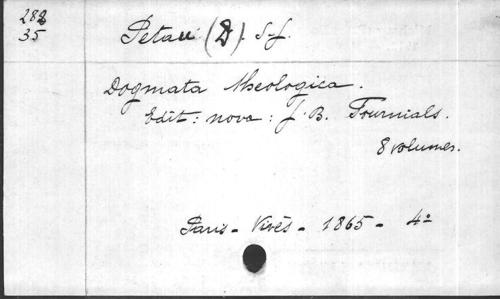 282
35
Petau (D). S.J.
Dogmata theologica.
Edit: nova: J. B. Fournials.
8 volumes.
Paris - Vivès - 1865 - 4º